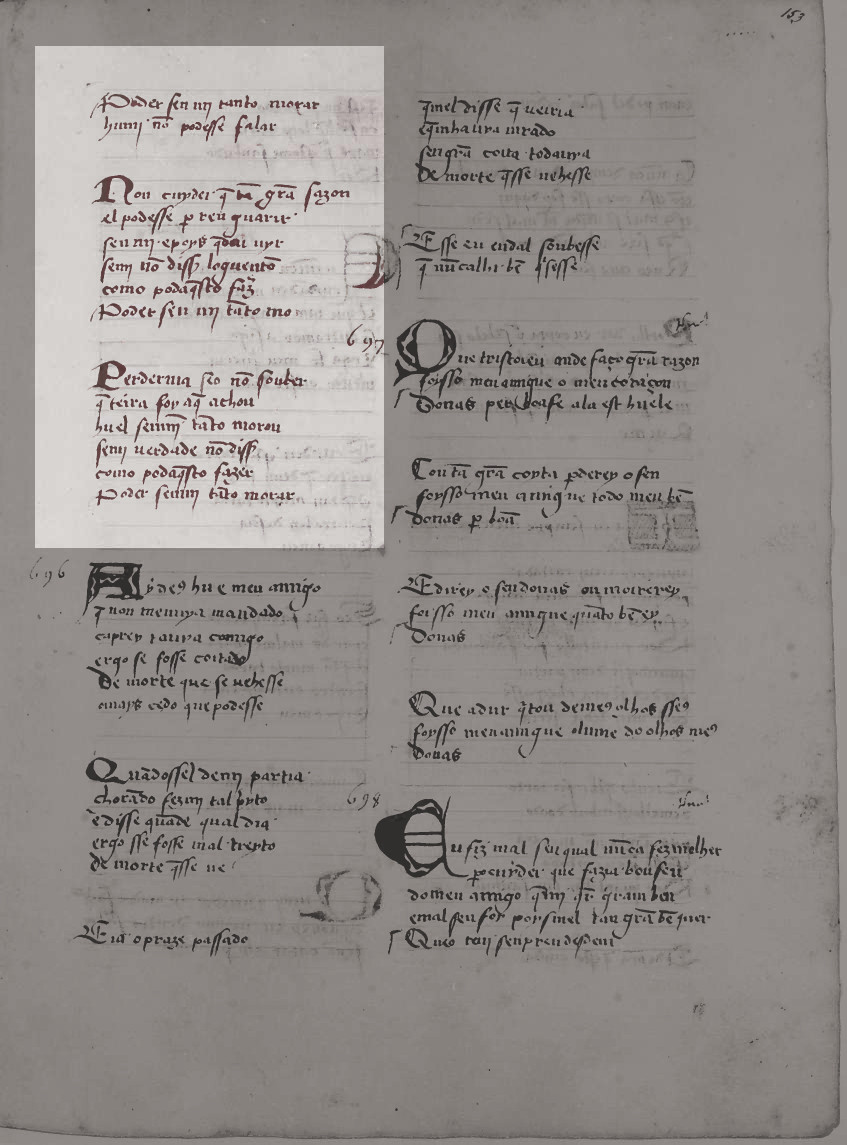 Poder sen mi tanto morar
humj nō podesse falar
Non cuydei q̄ tā grā sazon
el podesse p̄ ren guarir
sen mi epoys
semj nō diss loquentō
como
Poder sen mj tāto mo
697
Perdermia seo nō souber
q̄ teira foy aq̄ achou
huel semmj tāto morou
semj uerdade nō diss
como podaq̄sto fazer
Poder semmj tāto morar
696
Ay deꝯ hu e meu amigo
q̄ non menuya mandado
caprey tauya comigo
ergo se fosse coitado
De morte que se uehesse
omays cedo que podesse
Quādossel demj partia
chorādo fezmj tal pyto
e disse quāde qual dia
ergo sse fosse mal treyto
de morte q̄sse ue
Eia o praze passado
153
q̄mel disse q̄ ueiria
eq̄mhauya iurado
sengrā coita todauya
De morte q̄sse uehesse
Esse eu endal soubesse
q̄ nūcalhi bē q̄sesse
Que tristoieu ande faço grā razon
foysso meu amigue o meu coraçon
Donas per boafe ala est huele
Con tā grā coyta pderey o sen
foysso meu amigue todo meu bē
donas p boā
E direy o sen donas ou moirerey
foisso meu amigue quāto bē ey
Donas
Que adur q̄tou demeꝯ olhos sseꝯ
foysso meu amigue olume do olhos meꝯ
Donas
698
u fiz mal sen qual nūca fez molher
pocuyder que fazia bon sen
domeu amigo q̄mj gram ben
emal sen foy poys mel tan grā bē quer